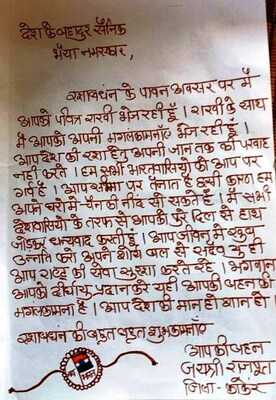 देश के बहादुर सैनिक
भैया नमस्कार,
रक्षाबंधन के पावन अवसर पर मैं
आपको पवित्र राखी भेज रही हूँ । राखी के साथ
मैं आपको अपनी मंगलकामनाएँ भेज रही हूँ ।
आप देश की रक्षा हेतु अपनी जान तक की परवाह
नहीं करते । हम सभी भारतवासियों को आप पर
गर्व है । आप सीमा पर तैनात है इसी कारण हम
अपने घरों में चैन की नींद सो सकते हैं । मैं सभी
देशवासियों के तरफ से आपको पुरे दिल से हाथ
जोड़कर धन्यवाद करती हूँ । आप जीवन में खुब
उन्नति करें अपने शौर्य बल से सदैव
आप राष्ट्र की सेवा सुरक्षा करते रहे । भगवान
आपको दीर्घायु प्रदान करें यही आपकी बहन की
मंगलकामना है । आप देश की मान हो शान हो ।
रक्षाबंधन की बहुत बहुत शुभकामनाएँ
आपकी बहन
जयश्री राजपूत
जिला - कांकेर